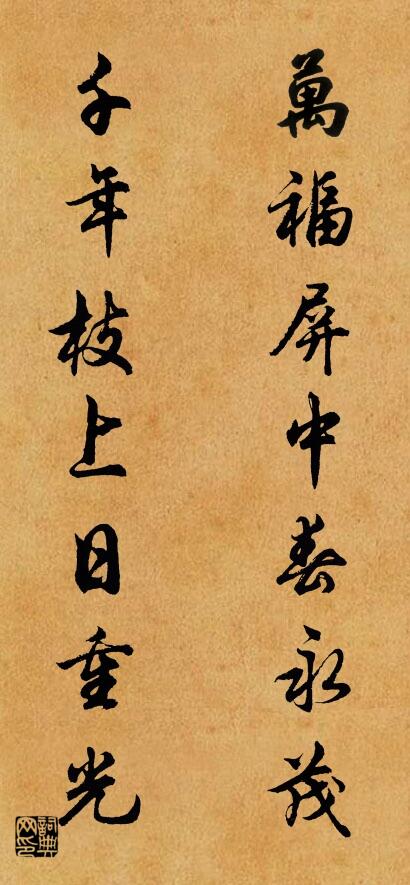 萬福屏中春永茂
千年枝上日重光
詞典網印